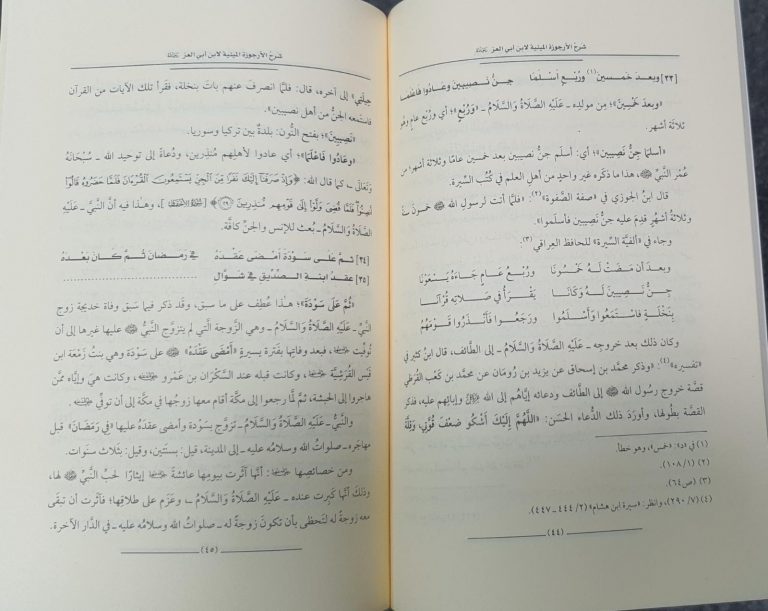 شرح الأرجوزة الميئية لابن أبي العز رحمه الله
[٢٣] وبعد خمسين(١) وربع أسلما جن نصيبين وعادوا فاعلما
«وبعد خمسين»؛ من مولده ـ عليه الصلاة والسلام ـ «وربع»؛ أي وربع عام وهو
ثلاثة أشهر.
«أسلما جن نصيبين»؛ أي: أسلم جن نصيبين بعد خمسين عاما وثلاثة أشهر من
عمر النبي ﷺ، هذا ما ذكره غير واحد من أهل العلم في كتب السيرة.
قال ابن الجوزي في «صفة الصفوة»(٢): «فلما أتت لرسول الله ﷺ خمسون سنة
وثلاثة أشهر قدم عليه جن نصيبين فأسلموا».
وجاء في «ألفية السيرة» للحافظ العراقي(٣):
وبعد أن مضت له خمسونا وربع عام جاءه يسعونا
جن نصيبين له وكانا يقرأ في صلاته قرآنا
بنخلة فاستمعوا وأسلموا ورجعوا فأنذروا قومهم
وكان ذلك بعد خروجه ـ عليه الصلاة والسلام ـ إلى الطائف، قال ابن كثير في
«تفسيره»(٤): «وذكر محمد بن إسحاق عن يزيد بن رومان عن محمد بن كعب القرظي
قصة خروج رسول الله ﷺ إلى الطائف ودعائه إياهم إلى الله ﷻ وإبائهم عليه، فذكر
القصة بطولها، وأورد ذلك الدعاء الحسن: «اللهم إليك أشكو ضعف قوتي، وقلة
(١) في «د»: «خمس»، وهو خطأ.
(٢) (١/١٠٨).
(٣) (ص٦٤).
(٤) (٧/٢٩٠)، وانظر: «سيرة ابن هشام» (٢/٤٤٤-٤٤٧).
(٤٤)
شرح الأرجوزة الميئية لابن أبي العز رحمه الله
حيلتي» إلى آخره، قال: فلما انصرف عنهم بات بنخلة، فقرأ تلك الآيات من القرآن
فاستمعه الجن من أهل نصيبين».
«نصيبين»؛ بفتح النون: بلدة بين تركيا وسوريا.
«وعادوا فاعلما»؛ أي عادوا لأهلهم منذرين، ودعاة إلى توحيد الله ـ سبحانه
وتعالى ـ كما قال الله: ﴿وإذ صرفنا إليك نفرا من الجن يستمعون القرءان فلما حضروه قالوا
أنصتوا فلما قضي ولوا إلى قومهم منذرين ٢٩﴾ [سورة الأحقاف]، وهذا فيه أن النبي ـ عليه
الصلاة والسلام ـ بعث للإنس والجن كافة.
[٢٤] ثم على سودة أمضى عقده في رمضان ثم كان بعده
[٢٥] عقد ابنة الصديق في شوال ........................
«ثم على سودة»؛ هذا عطف على ما سبق، وقد ذكر فيما سبق وفاة خديجة زوج
النبي ـ عليه الصلاة والسلام ـ وهي الزوجة التي لم يتزوج النبي ﷺ عليها غيرها إلى أن
توفيت رضي الله عنها، فبعد وفاتها بفترة يسيرة «أمضى عقده» ﷺ على سودة وهي بنت زمعة ابن
قيس القرشية رضي الله عنها، وكانت قبله عند السكران بن عمرو رضي الله عنه، وكانت هي وإياه ممن
هاجروا إلى الحبشة، ثم لما رجعوا إلى مكة أقام معها زوجها في مكة إلى أن توفي رضي الله عنه.
والنبي ـ عليه الصلاة والسلام ـ تزوج بسودة وأمضى عقده عليها «في رمضان» قبل
مهاجره ـ صلوات الله وسلامه عليه ـ إلى المدينة، قيل: بسنتين، وقيل: بثلاث سنوات.
ومن خصائصها رضي الله عنها: أنها آثرت بيومها عائشة رضي الله عنها إيثارا لحب النبي ﷺ لها،
وذلك أنها كبرت عنده ـ عليه الصلاة والسلام ـ وعزم على طلاقها؛ فآثرت أن تبقى
معه زوجة له لتحظى بأن تكون زوجة له ـ صلوات الله وسلامه عليه ـ في الدار الآخرة.
(٤٥)